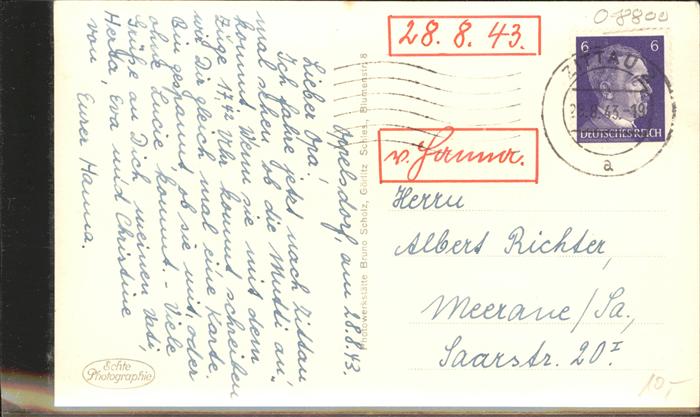 Oppelsdorf, am 28.8.43.
Lieber Opa,
Ich fahre jetzt nach Zittau,
mal sehen ob die Mutti an,
kommt. Wenn sie mit dem
Zuge 17,42 Uhr kommt schreiben
wir Dir gleich mal eine Karte.
Bin gespannt, ob sie mit oder
ohne Lucie kommt. - Viele
Grüße an Dich, meinen Vati,
Herta, Eva und Christine
von Eurer Hanna.
Echte
Photographie
Photowerkstätte Bruno Scholz, Görlitz Schles., Blumenstr. 8
28. 8. 43.
v. Hanna.
08800
6 6
DEUTSCHES REICH
ZITTAU
28.8.43.-19
a
Herrn
Albert Richter,
Meerane/Sa,
Saarstr. 20 I
10,-